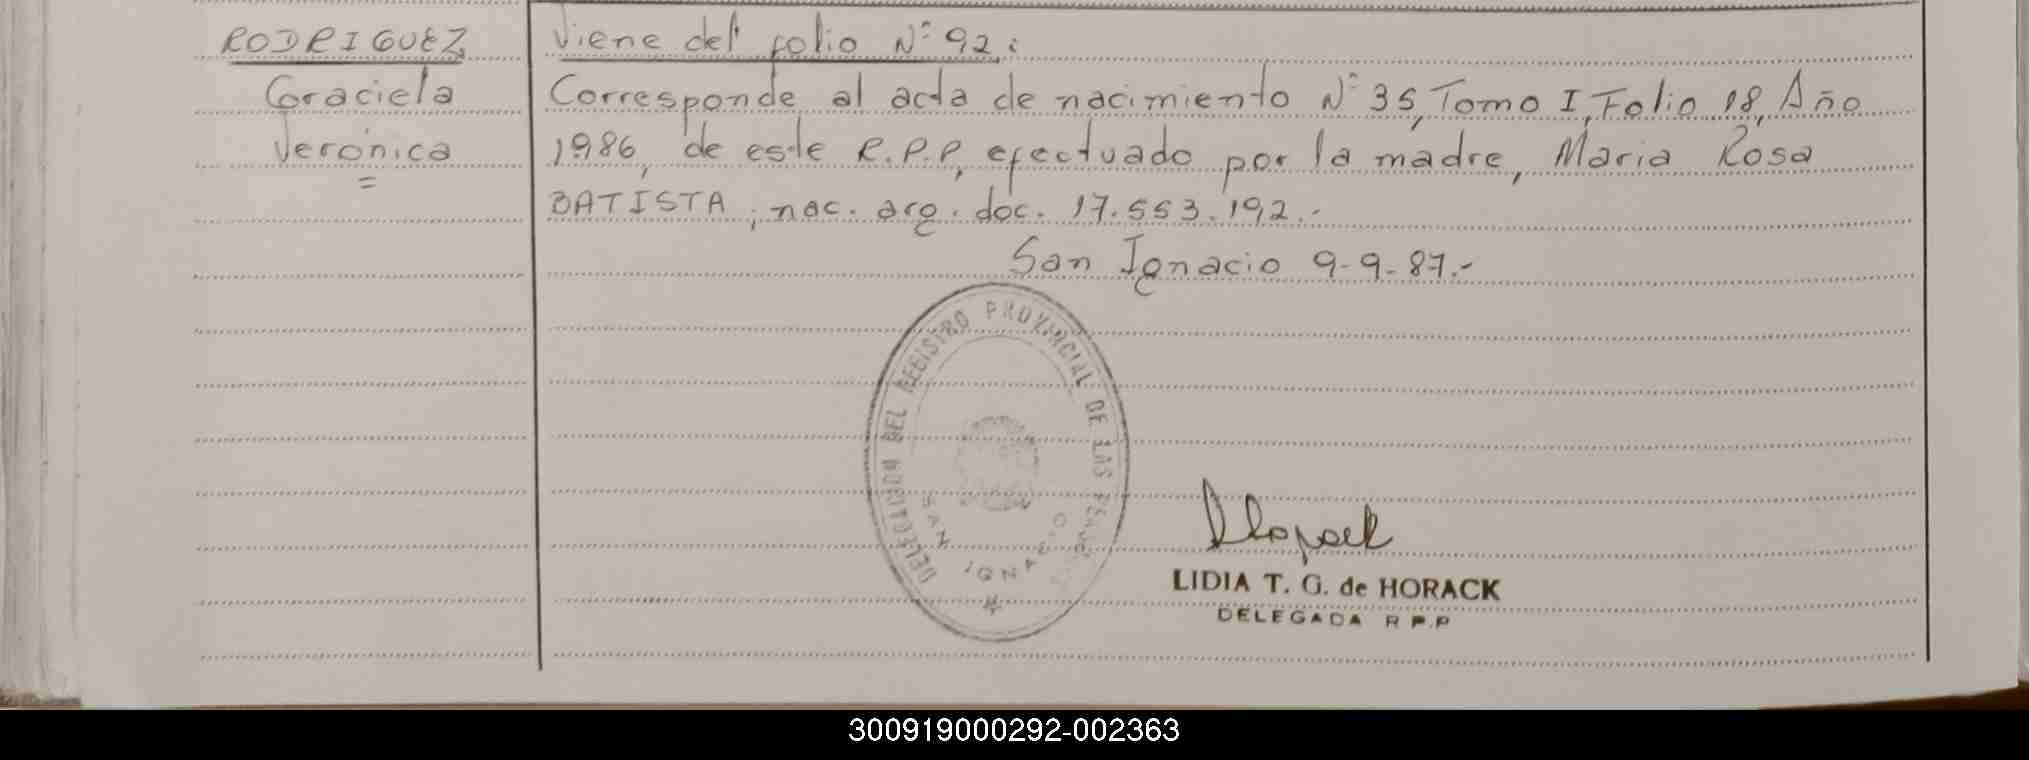 RODRIGUEZ
Graciela
Verónica
=
Viene del folio Nº 92:
Corresponde al acta de nacimiento Nº 35, Tomo I, Folio 18, Año
1986, de este R.P.P, efectuado por la madre, Maria Rosa
BATISTA, nac. arg. doc. 17.553.192.-
San Ignacio 9-9-87.-
DELEGACION DEL REGISTRO PROVINCIAL DE LAS
SAN IGNACIO
LIDIA T. G. de HORACK
DELEGADA R P.P
300919000292-002363